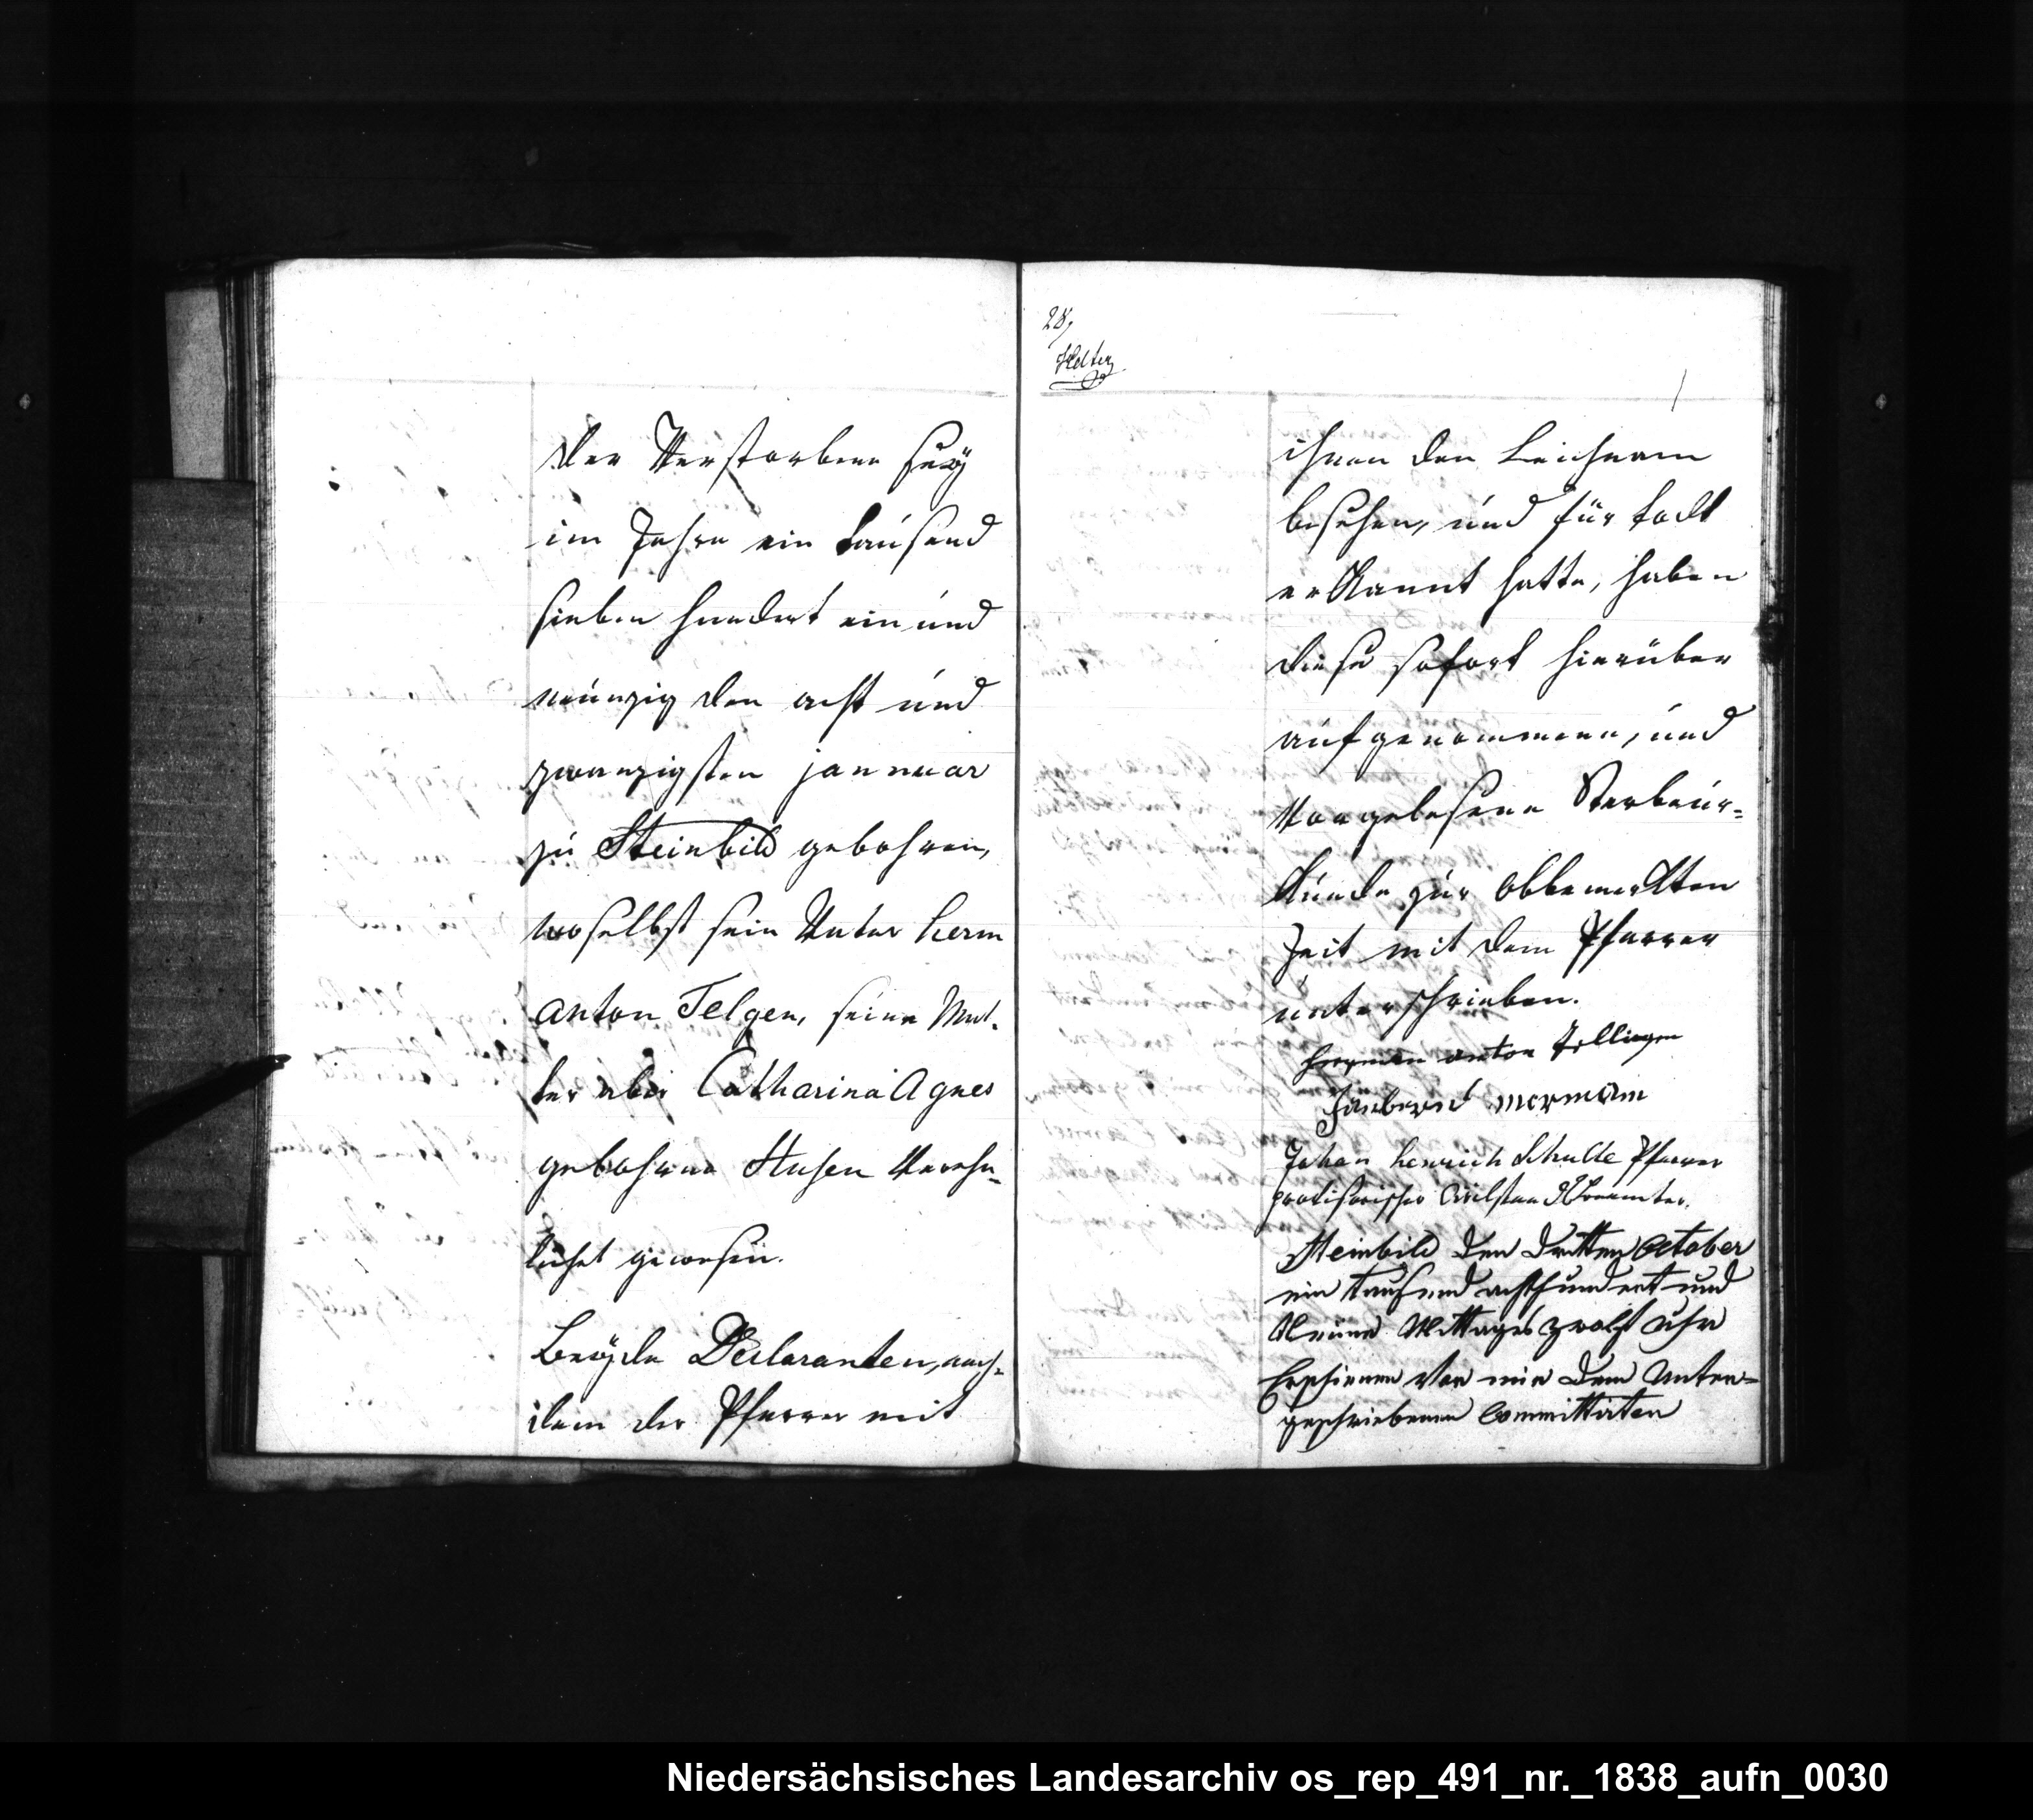 der Verstorbene sey
im Jahre ein tausend
sieben hundert ein und
neunzig den acht und
zwanzigsten januar
zu Steinbild gebohren,
woselbst sein Vater herm
anton Telgen, seine Mut-
ter aber Catharina Agnes
gebohrne Husen Vereh-
licht gewesen.
Beÿde Declaranten, nach-
dem der Pfarrer mit
28,
ihnen den Leichnam
besehen, und für todt
erkannt hatte, haben
diese sofort hierüber
aufgenommene, und
Vorgelesene Sterbeur-
kunde zur obbemerkten
Zeit mit dem Pfarrer
unterschrieben.
herman anton Tellingen
Janbernd mormann
Johan henrich Schulte Pfarrer
provisorischer Civilstandsbeamter.
Steinbild den dritten October
ein tausend achthundert und
Neune Mittages zwölf Uhr
Erschienen Vor mir dem Unter-
geschriebenen Committirten
Niedersächsisches Landesarchiv os_rep_491_nr._1838_aufn_0030